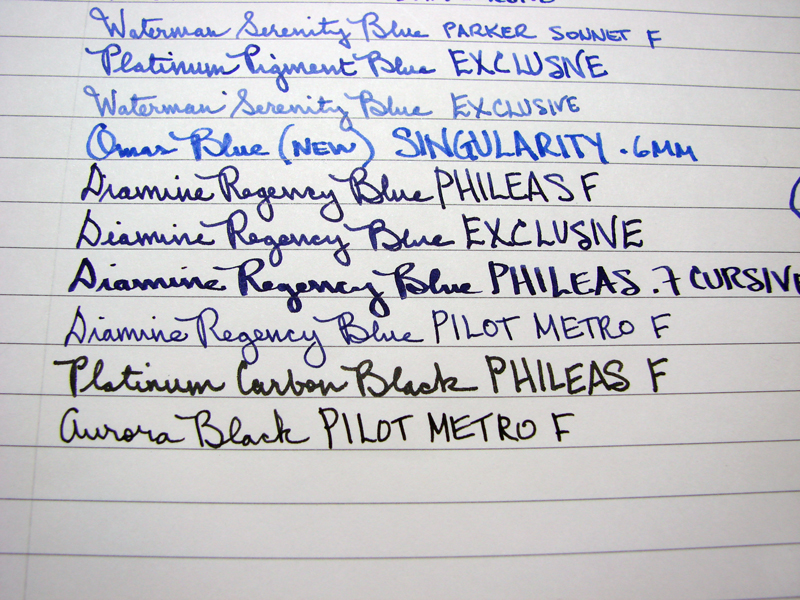 Waterman Serenity Blue PARKER SONNET F
Platinum Pigment Blue EXCLUSIVE
Waterman Serenity Blue EXCLUSIVE
Omas Blue (NEW) SINGULARITY .6MM
Diamine Regency Blue PHILEAS F
Diamine Regency Blue EXCLUSIVE
Diamine Regency Blue PHILEAS .7 CURSIVE
Diamine Regency Blue PILOT METRO F
Platinum Carbon Black PHILEAS F
Aurora Black PILOT METRO F